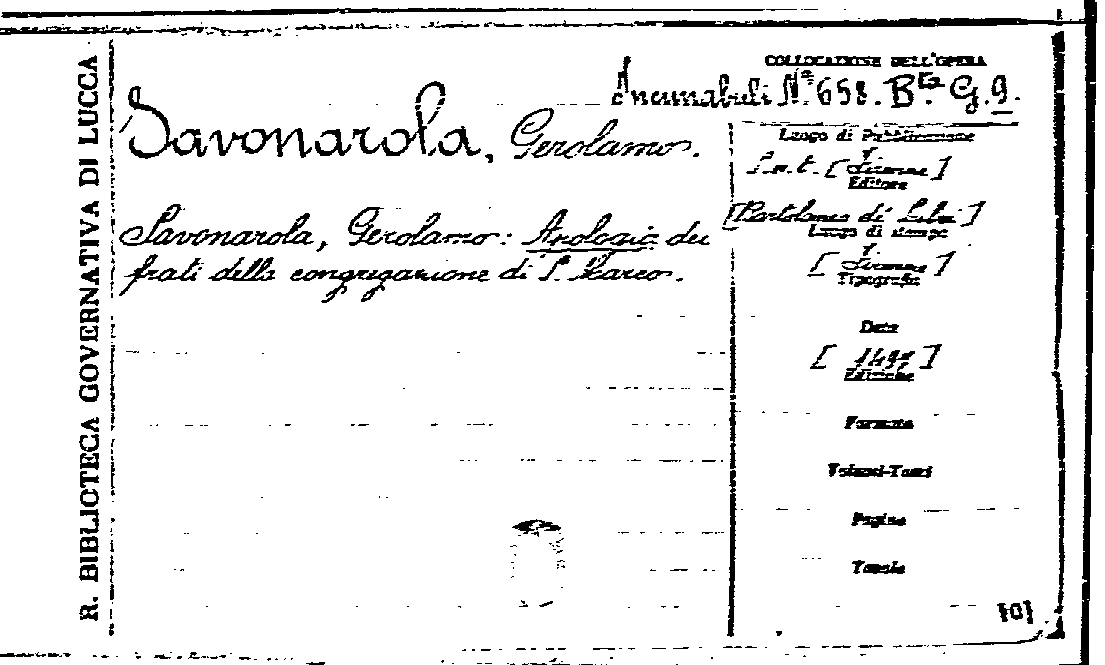 R. BIBLIOTECA GOVERNATIVA DI LUCCA
COLLOCAZIONE DELL'OPERA
Incunabuli N.º 658. B.ta G.9.
Savonarola, Gerolamo.
Savonarola, Gerolamo: Apologia dei
frati della congregazione di S. Marco.
Luogo di Pubblicazione
S.n.t. [Firenze]
Editore
[Bartolomeo di Libri]
Luogo di stampa
[Firenze]
Tipografo
Data
[149 ]
Edizione
Formato
Volumi-Tomi
Pagine
Tavole
[0]